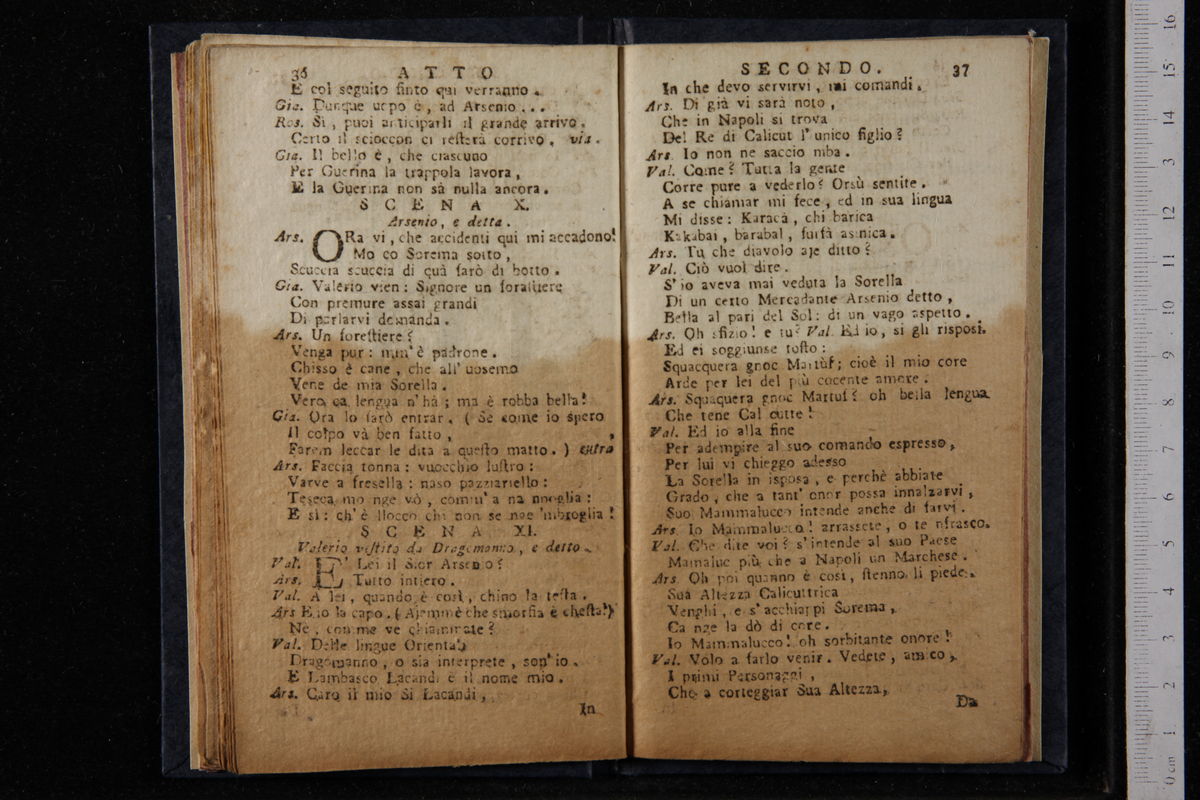 36 ATTO
E col seguito finto qui verranno.
Gia. Dunque uopo è, ad Arsenio...
Ros. Sì, puoi anticiparli il grande arrivo.
Certo il scioccon ci resterà corrivo. via.
Gia. Il bello è, che ciascuno
Per Guerina la trappola lavora,
E la Guerina non sà nulla ancora.
SCENA X.
Arsenio, e detta.
Ars. ORa vi, che accidenti qui mi accadono!
Mo co Sorema sotto,
Scuccia scuccia di quà farò di botto.
Gia. Valerio vien: Signore un forastiere
Con premure assai grandi
Di parlarvi demanda.
Ars. Un forestiere?
Venga pur: mm'è padrone.
Chisso è cane, che all'uosemo
Vene de mia Sorella.
Vero ca lengua n'hà; ma è robba bella!
Gia. Ora lo farò entrar. (Se come io spero
Il colpo và ben fatto,
Farem leccar le dita a questo matto.) entra
Ars. Faccia tonna: vuocchio lustro:
Varve a fresella: naso pazziariello:
Teseca mo nge vò, comm'a na nnoglia:
E sì: ch'è llocco chi non se nae 'mbroglia!
SCENA XI.
Valerio vestito da Dragomanno, e detto.
Val. E' Lei il Sior Arsenio?
Ars. Tutto intiero.
Val. A lei, quando è così, chino la testa.
Ars E io la capo. (Ajemmè che smorfia è chesta!)
Nè, comme ve chiammate?
Val. Delle lingue Orientali
Dragomanno, o sia interprete, son'io.
E Lambasco Lacandi è il nome mio.
Ars. Caro il mio Si Lacandi,
In
SECONDO. 37
In che devo servirvi, mi comandi.
Ars. Di già vi sarà noto,
Che in Napoli si trova
Del Re di Calicut l'unico figlio?
Ars. Io non ne saccio mba.
Val. Come? Tutta la gente
Corre pure a vederlo? Orsù sentite.
A se chiamar mi fece, ed in sua lingua
Mi disse: Karacà, chi barica
Kakabai, barabal, furfà asinica.
Ars. Tu che diavolo aje ditto?
Val. Ciò vuol dire.
S'io aveva mai veduta la Sorella
Di un certo Mercadante Arsenio detto,
Bella al pari del Sol: di un vago aspetto.
Ars. Oh sfizio! e tu? Val. Ed io, si gli risposi.
Ed ei soggiunse tosto:
Squacquera gnoc Martùf; cioè il mio core
Arde per lei del più cocente amore.
Ars. Squaquera gnoc Martuf? oh bella lengua
Che tene Cal cutte!
Val. Ed io alla fine
Per adempire al suo comando espresso,
Per lui vi chieggo adesso
La Sorella in isposa, e perchè abbiate
Grado, che a tant'onor possa innalzarvi,
Suo Mammalucco intende anche di farvi.
Ars Io Mammalucco! arrassete, o te nfrasco.
Val. Che dite voi? s'intende al suo Paese
Mamaluc più che a Napoli un Marchese.
Ars Oh poi quanno è così, stenno li piede.
Sua Altezza Calicuttrica
Venghi, e s'acchiappi Sorema,
Ca nge la dò di core.
Io Mammalucco! oh sorbitante onore!
Val. Volo a farlo venir. Vedete, amico,
I primi Personaggi,
Che a corteggiar Sua Altezza,
Da
16 15 14 13 12 11 10 9 8 7 6 5 4 3 2 1 0 cm